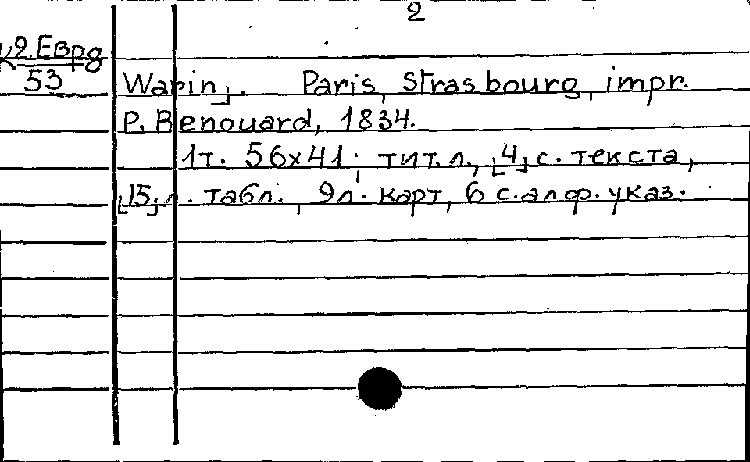 2
К 9.Евр8
53
Warin]. Paris, Strasbourg, impr.
P. Renouard, 1834.
1т. 56x41; тит. л., [4] с. текста,
[15] л. табл., 9 л. карт, 6 с. алф. указ.